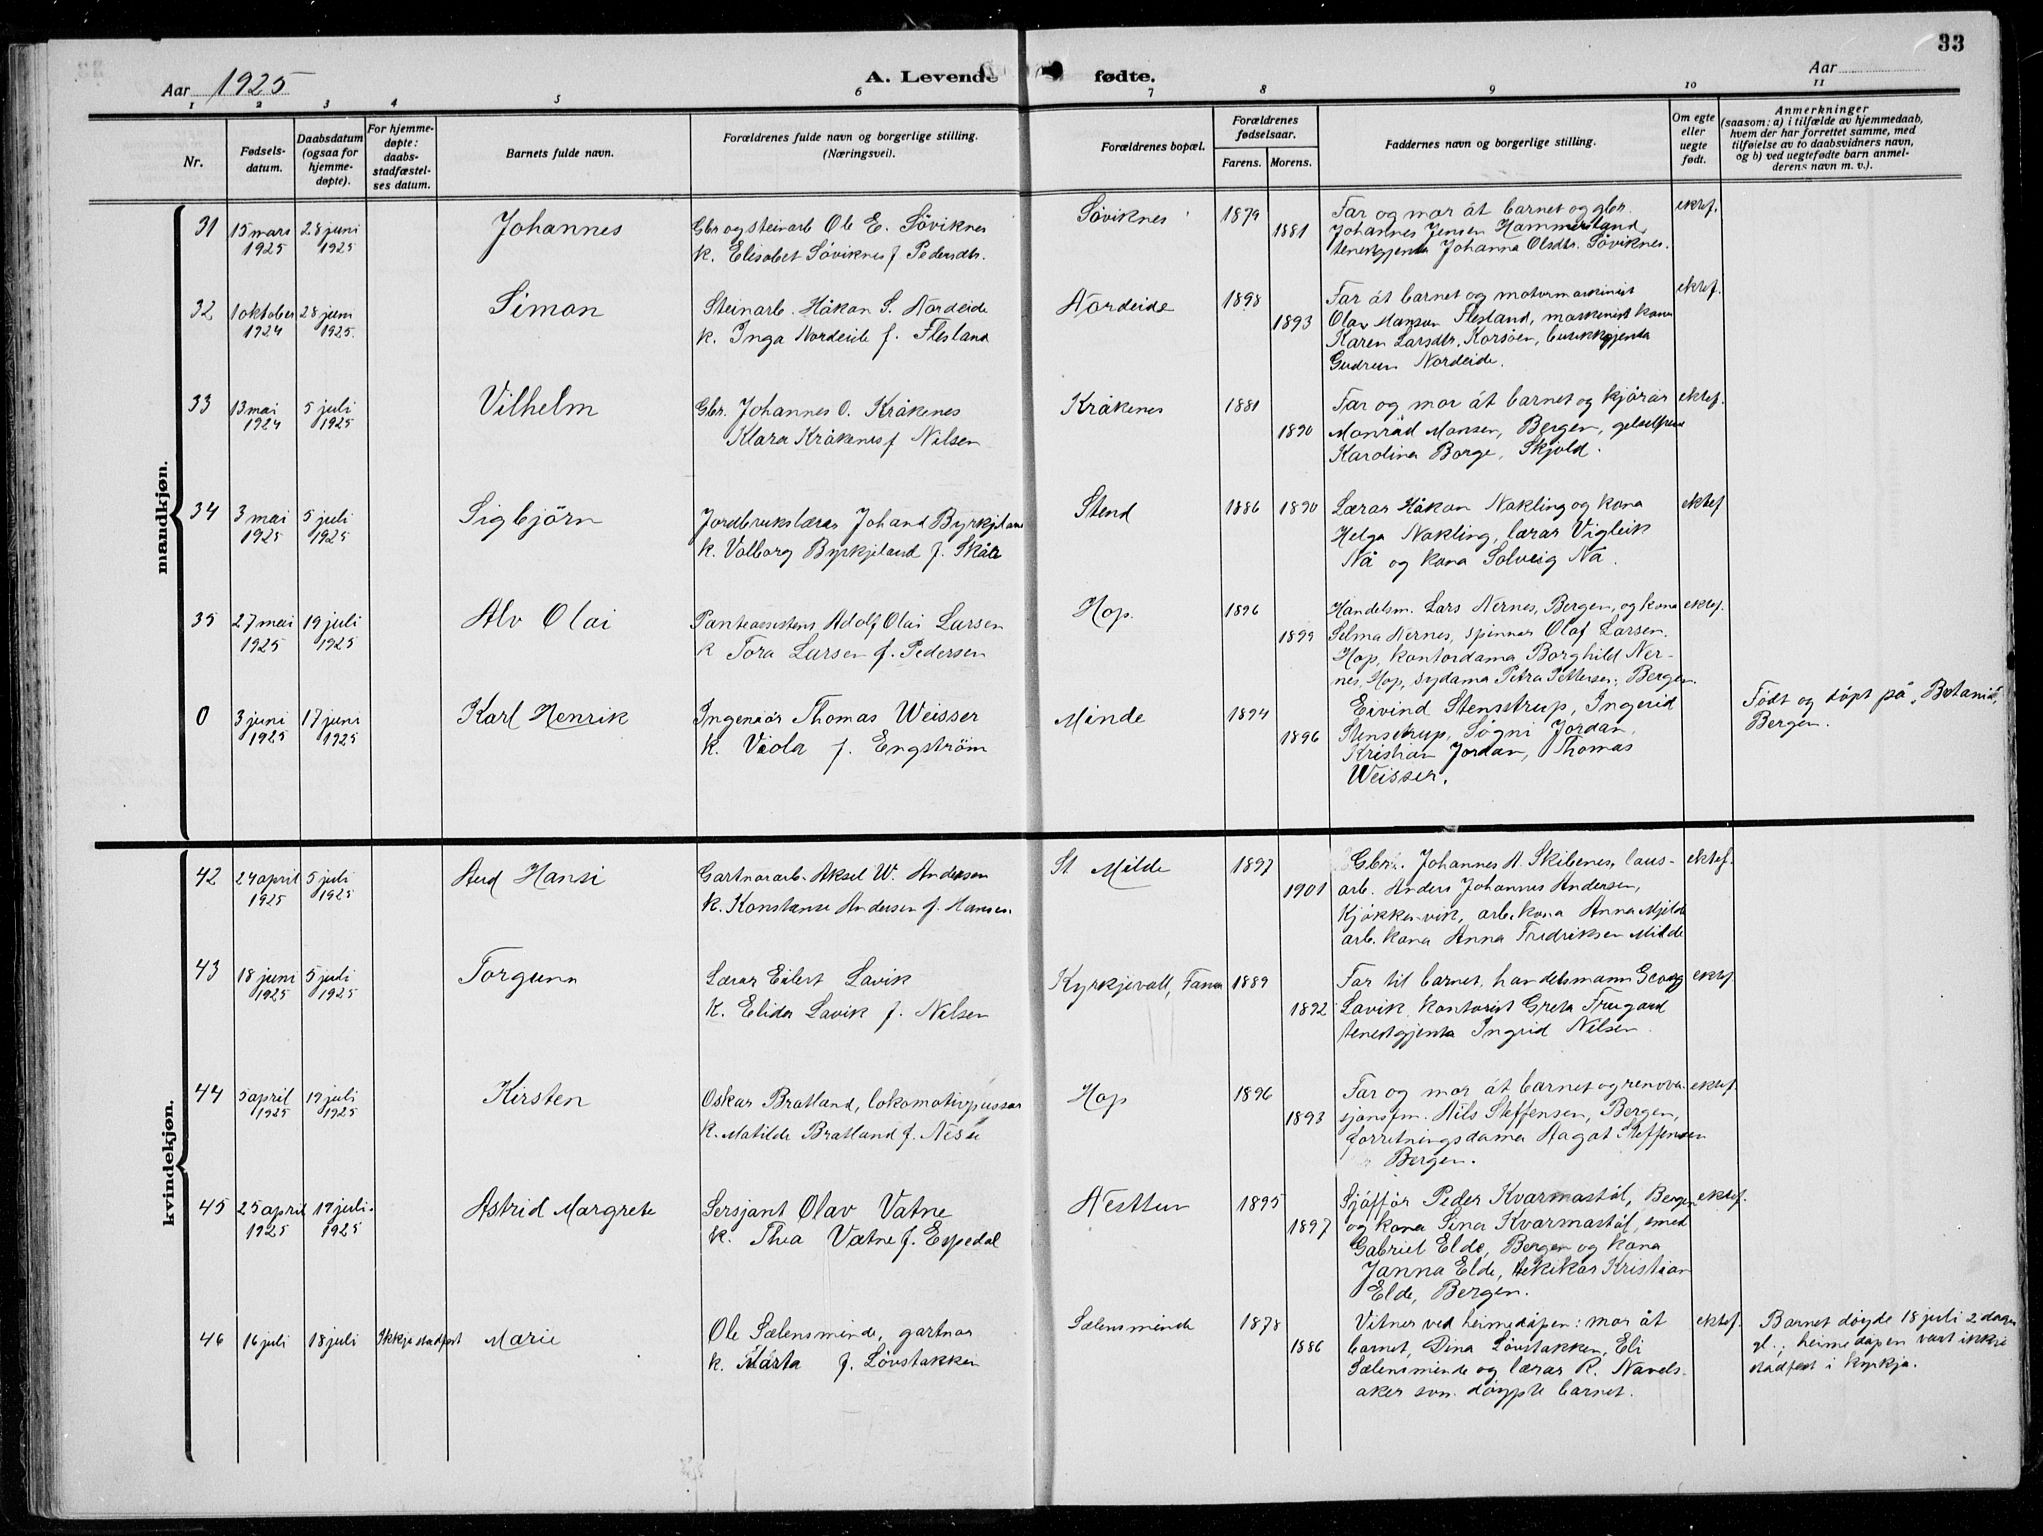 33
Aar 1925
A. Levende fødte.
Aar
1 2 3 4 5 6 7 8 9 10 11
Nr.
Fødsels-
datum.
Daabsdatum
(ogsaa for
hjemme-
døpte).
For hjemme-
døpte:
daabs-
stadfæstel-
ses datum.
Barnets fulde navn.
Forældrenes fulde navn og borgerlige stilling.
(Næringsvei).
Forældrenes bopæl.
Forældrenes
fødselsaar.
Farens. Morens.
Faddernes navn og borgerlige stilling.
Om egte
eller
uegte
født.
Anmerkninger
(saasom: a) i tilfælde av hjemmedaab,
hvem der har forrettet samme, med
tilføielse av to daabsvidners navn,
og b) ved uegtefødte barn anmel-
derens navn m. v.).
mandkjøn.
31
15 mars
1925
28 juni
1925
Johannes
Gbr og steinarb Ole E. Søviknes
k. Elisabet Søviknes f. Pedersdtr.
Søviknes
1879
1881
Far og mor åt barnet og gbr.
Johannes Jensen Hammersland,
tenestgjenta Johanna Olsdtr. Søviknes.
ektef.
32
1 oktober
1924
28 juni
1925.
Simon
Steinarb. Håkon S. Nordeide
k. Inga Nordeide f. Flesland
Nordeide
1898
1893
Far åt barnet og motormaskinist
Olav Monsen Flesland, maskinist kona
Karen Larsdtr. Korsøen, butikkgjenta
Gudrun Nordeide.
ektef.
33
13 mai
1924
5 juli
1925
Vilhelm
Gbr. Johannes O. Kråkenes
Klara Kråkenes f Nilsen
Kråkenes
1881
1890
Far og mor åt barnet og kjørar
Monråd Monsen, Bergen,
Karolina Borge, Skjold.
ektef.
34
3 mai
1925
5 juli
1925
Sigbjörn
Jordbrukslærar Johan d Byrkjeland
k. Valborg Byrkjeland f. Skåle
Stend
1886
1890
Lærar Håkon Nakling og kona
Helga Nakling, lærar Vigleik
Nå og kona Solveig Nå.
ektef
35
27 mai
1925
19 juli
1925
Alv Olai
Panteassistens Adolf Olai Larsen
k Tora Larsen f. Pedersen
Hop.
1896
1899
Handelsm. Lars Nernes, Bergen, og kona
Selma Nernes, spinnar Olaf Larsen.
Hop, kontordama Borghild Ner-
nes, Hop, sydama Petra Pettersen, Bergen.
ektef.
0
3 juni
1925
17 juni
1925
Karl Henrik
Ingeniør Thomas Weisser
k. Viola f. Engström
Minde
1894
1896
Eivind Stensstrup, Ingerid
Stensstrup, Søgni Jordan,
Kristian Jordan, Thomas
Weisser.
Født og døpt på „Betania“,
Bergen.
kvindekjøn.
42
24 april
1925
5 juli
1925
Aud Hansi
Gartnararb. Aksel W. Andersen
k. Konstanse Andersen f. Hansen.
St Milde
1897
1901
Gbr. Johannes A. Skibenes, laus-
arb. Anders Johannes Andersen,
Kjøkkenvik, arb. kona Anna Mjelde
arb. kona Anna Fredriksen Milde
ektef.
43
18 juni
1925
5 juli
1925
Torgunn
Lærar Eilert Lavik
K. Elida Lavik f. Nilsen
Kyrkjevoll, Fana
1889
1892
Far til barnet, handelsmann Georg
Lavik, kontorist Greta Frugard
tenestgjenta Ingrid Nilsen.
ektef.
44
5 april
1925
19 juli
1925
Kirsten
Oskar Bratland, lokomotivpussar
k. Matilde Bratland f. Nesse
Hop
1896
1893
Far og mor åt barnet og renova-
sjonsfm. Nils Steffensen, Bergen,
forretningsdama Aagot Steffensen
Bergen.
ektef.
45
25 april
1925
19 juli.
1925
Astrid Margrete
Sersjant Olav Vatne
k. Thea Vatne f. Espedal
Nesttun
1895
1897
Sjåfför Peder Kvarmastøl, Bergen
og kona Sina Kvarmastøl, smed
Gabriel Elde, Bergen og kona
Janna Elde, tekikar Kristian
Elde, Bergen.
ektef.
46
16 juli
18 juli
Ikkje stadfest
Marie
Ole Sælensminde, gartnar
k. Marta f. Løvstakken
Sælensminde
1878
1886
Vitner ved heimedåpen: mor åt
barnet, Dina Løvstakken, Eli
Sælensminde og lærar R. Navels-
aker som døypte barnet.
ektef.
Barnet døyde 18 juli 2 dagar
gl.; heimedåpen vart ikkje
stadfest i kyrkja.